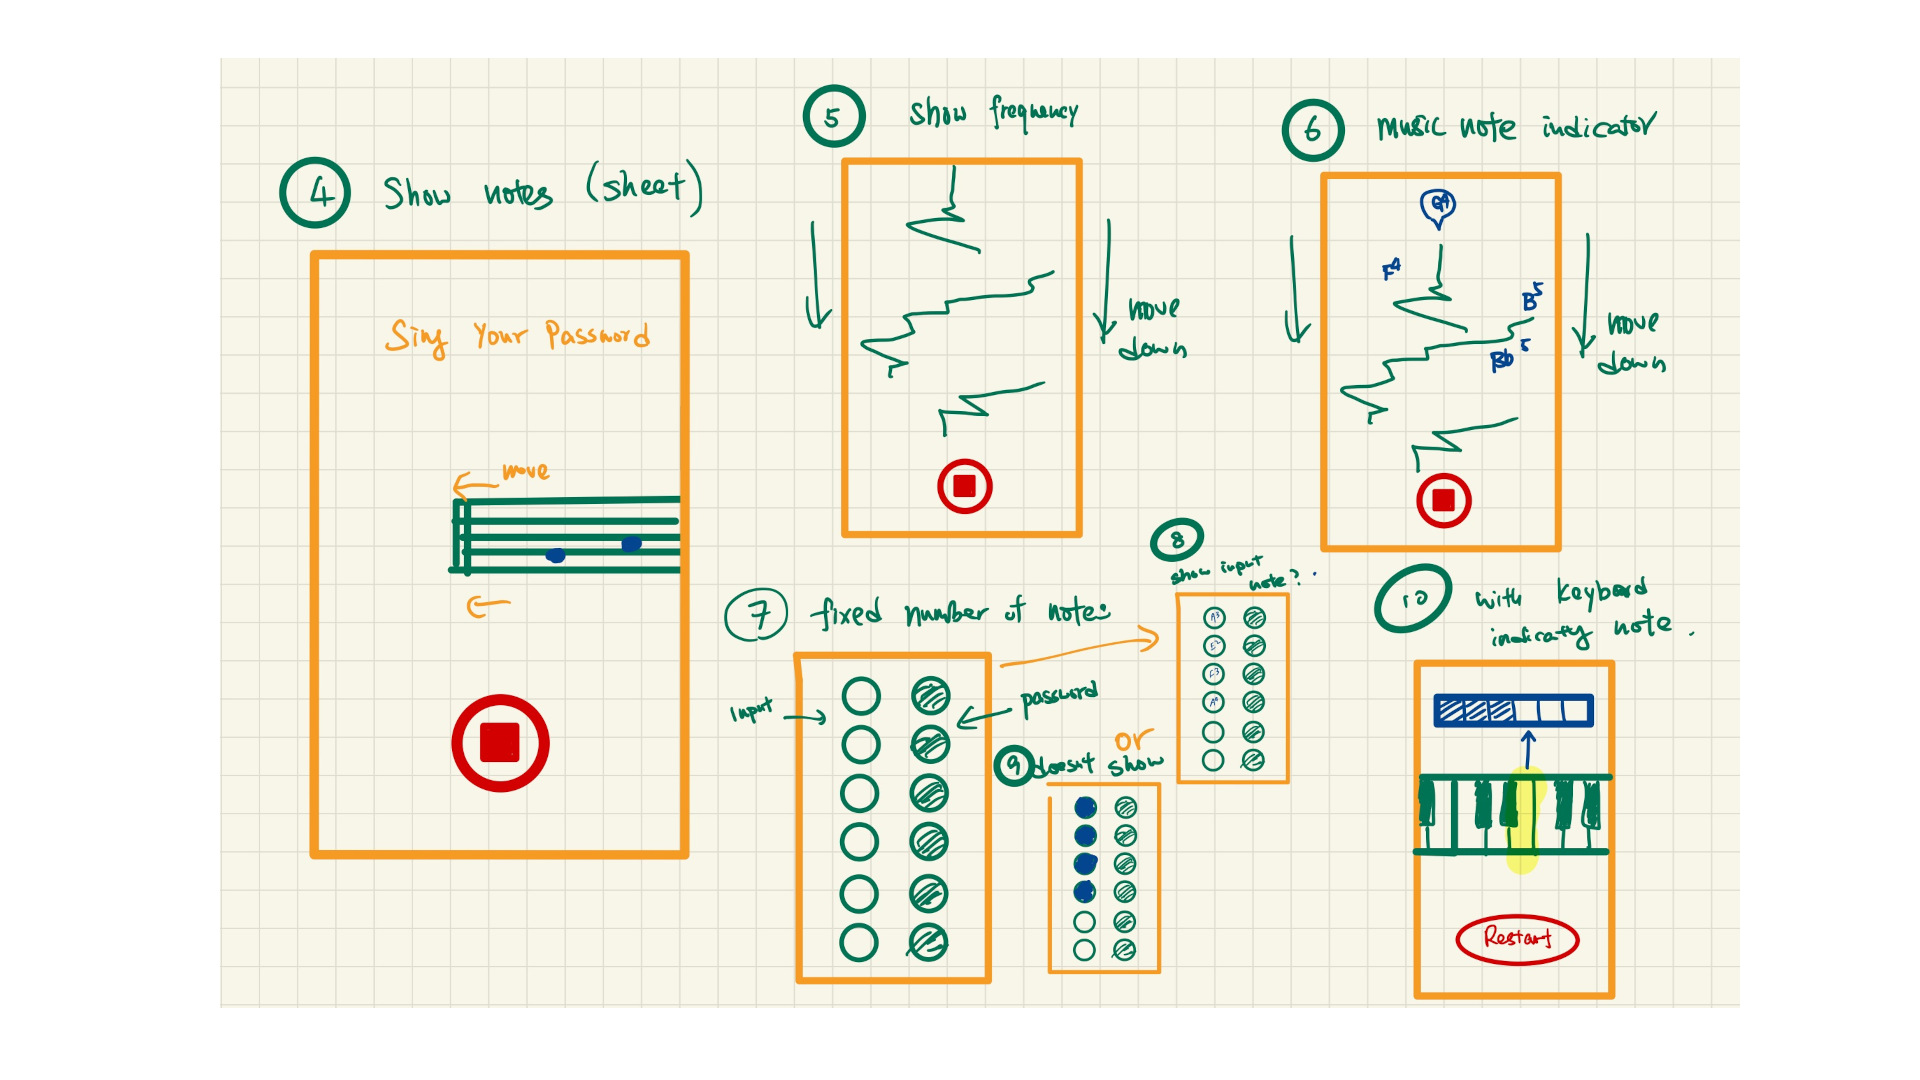 4 Show notes (sheet)
Sing Your Password
move
5 show frequency
move
down
6 music note indicator
F4
B5
Bb5
move
down
7 fixed number of notes
input
password
8
show input
note?
or
9 doesn't show
10 with keyboard
note.
Restart